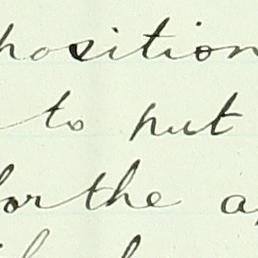 position
to put
for the a